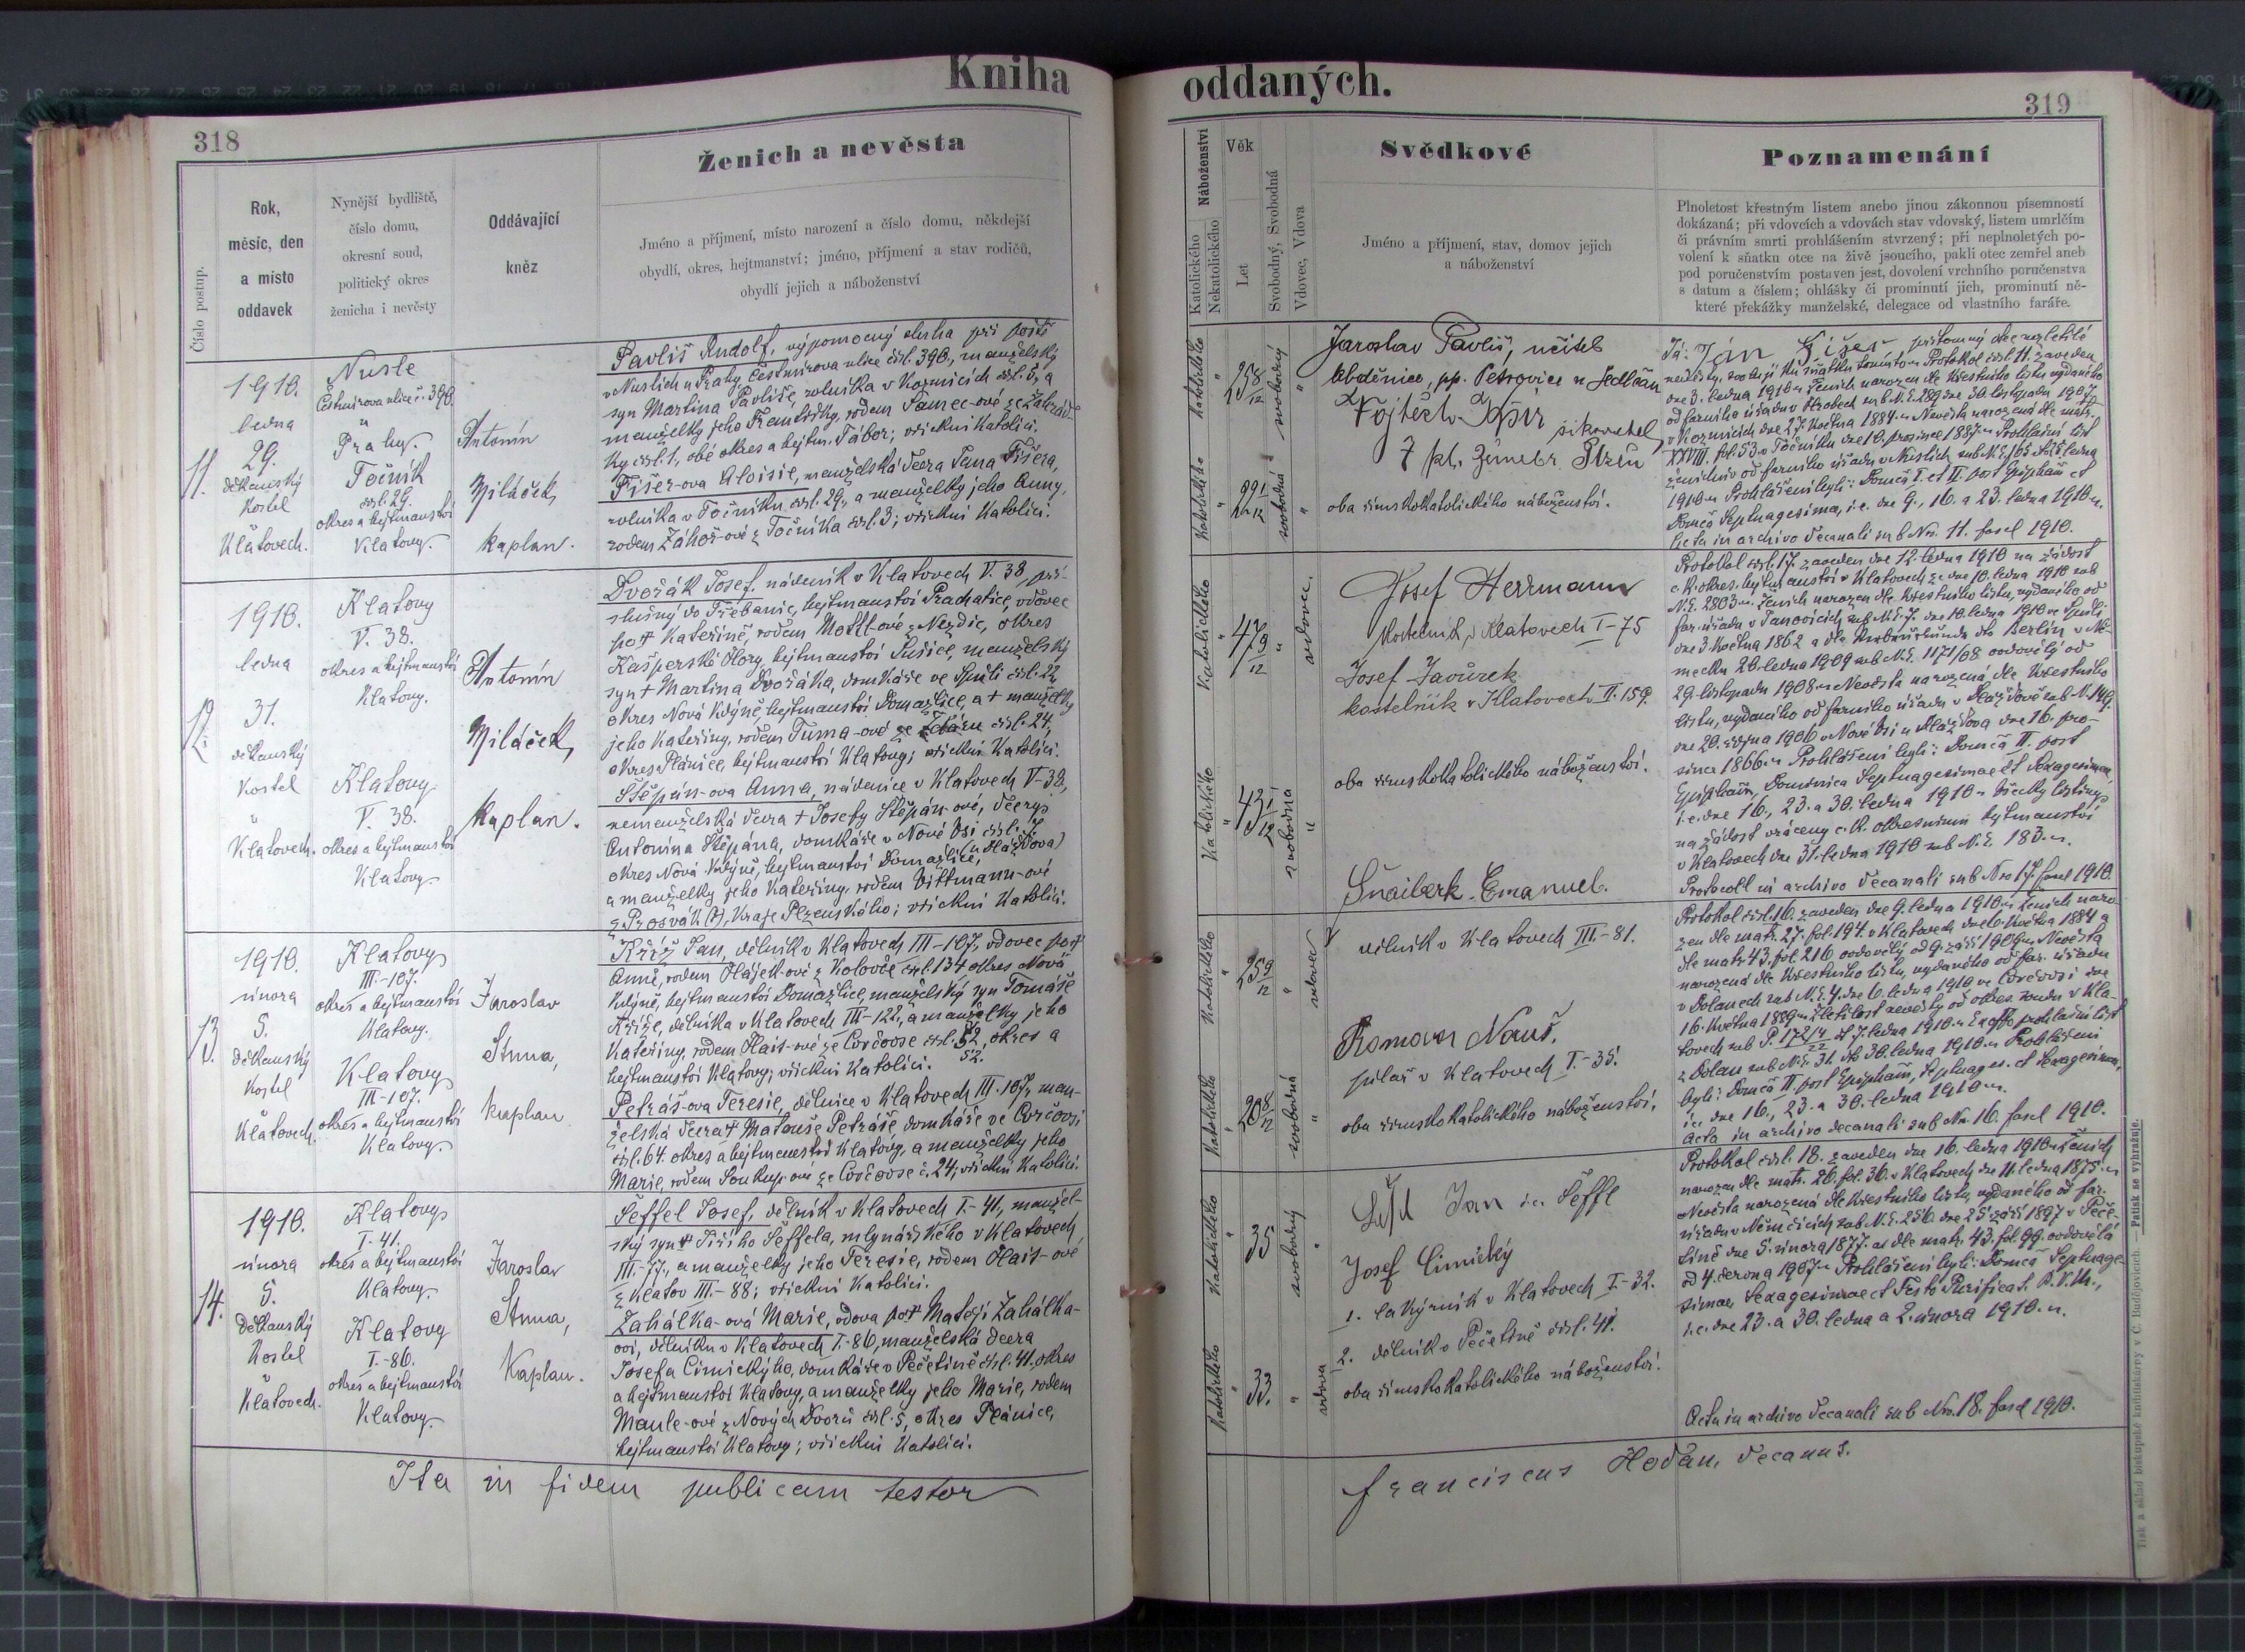 Kniha oddaných.
318
319
Číslo postup.
Rok,
měsíc, den
a místo
oddavek
Nynější bydliště,
číslo domu,
okresní soud,
politický okres
ženicha i nevěsty
Oddávající
kněz
Ženich a nevěsta
Jméno a příjmení, místo narození a číslo domu, někdejší
obydlí, okres, hejtmanství; jméno, příjmení a stav rodičů,
obydlí jejich a náboženství
Náboženství
Katolického
Nekatolického
Věk
Let
Svobodný, Svobodná
Vdovec, Vdova
Svědkové
Jméno a příjmení, stav, domov jejich
a náboženství
Poznamenání
Plnoletost křestným listem anebo jinou zákonnou písemností
dokázaná; při vdovcích a vdovách stav vdovský, listem umrlčím
či právním smrti prohlášením stvrzený; při neplnoletých po-
volení k sňatku otce na živě jsoucího, pakli otec zemřel aneb
pod poručenstvím postaven jest, dovolení vrchního poručenstva
s datum a číslem; ohlášky či prominutí jich, prominutí ně-
které překážky manželské, delegace od vlastního faráře.
11.
1910.
ledna
29.
děkanský
kostel
v
Klatovech.
Nusle
Čestmírova ulice č. 390.
u
Prahy.
Točník
čsl. 29.
okres a hejtmanství
Klatovy.
Antonín
Miláček,
kaplan.
Pavliš Rudolf, výpomocný sluha při poště
v Nuslích u Prahy, Čestmírova ulice čsl. 390., manželský
syn Martina Pavliše, rolníka v Kozmicích čsl. 5, a
manželky jeho Františky, rodem Samec-ové ze
ky čsl. 1., obé okres a hejtm. Tábor; všickni katolíci.
Fišer-ova Aloisie, manželská dcera Jana Fišera,
rolníka v Točníku čsl. 29., a manželky jeho Anny,
rodem Záhoř-ové z Točníka čsl. 3; všickni katolíci.
katolického
25 8/12
svobodný
katolického
22 1/12
svobodná
Jaroslav Pavliš, učitel
Obděnice, pp. Petrovice u Sedlčan
Vojtěch
šikovatel
7 pl. Plzeň
oba římskokatolického náboženství.
Já: Jan Fišer přítomný otec nezletilé
nevěsty, svoluji ku sňatku tomuto. Protokol čsl. 11. zaveden
dne 3. ledna 1910. Ženich narozen dle křestního listu vydaného
od farního úřadu v Hrobech sub N.E. 289 dne 30. listopadu 1907
v Kozmicích dne 27. května 1884. Nevěsta narozená dle matr.
XXVIII. fol. 53. v Točníku dne 10. prosince 1887. Prohlašní list
ženichův od farního úřadu v Nuslích sub N.E. 165 ledna
1910. Prohlášení byli: Domca I. et II. post Epiphan et
Domca Septuagesima, i.e. dne 9., 16. a 23. ledna 1910.
Acta in archivo decanali sub Nro. 11. fasc 1910.
12.
1910.
ledna
31.
děkanský
kostel
v
Klatovech.
Klatovy
V. 38.
okres a hejtmanství
Klatovy.
Klatovy
V. 38.
okres a hejtmanství
Klatovy.
Antonín
Miláček,
kaplan.
Dvořák Josef, nádeník v Klatovech V. 38, pří-
slušný do Třebanic, hejtmanství Prachatice, vdovec
po † Kateřině, rodem -ové z Nezdic, okres
Kašperské Hory, hejtmanství Sušice, manželský
syn † Martina Dvořáka, domkáře ve Spůli čsl. 22,
okres Nová Kdýně, hejtmanství Domažlice, a † manželky
jeho Kateřiny, rodem Tuma-ové ze čsl. 24,
okres Plánice, hejtmanství Klatovy; všickni katolíci.
Štěpán-ova Anna, nádenice v Klatovech V-38,
nemanželská dcera † Josefy Štěpán-ové, dcery
Antonína Štěpána, domkáře v Nové Vsi čsl. 7
(u Hlažďova)
okres Nová Kdýně, hejtmanství Domažlice,
a manželky jeho Kateřiny, rodem Vittmann-ové
z (?), kraje Plzeňského; všickni katolíci.
Katolického
47 9/12
vdovec
Katolického
43 1/12
svobodná
Josef Herrmann
kostelník v Klatovech I-75
Josef Javůrek
kostelník v Klatovech II. 159.
oba římskokatolického náboženství.
Protokol čsl. 17. zaveden dne 12. ledna 1910 na žádost
c. k. okres. hejtmanství v Klatovech ze dne 10. ledna 1910 sub
N.E. 2803. Ženich narozen dle křestního listu, vydaného od
far. úřadu v Janovicích sub N.E. 7. dne 10. ledna 1910 ve Spůli
dne 3 května 1862 a dle dto Berlín v Ně-
mecku 26. ledna 1909 sub N.E. 1171/08 ovdovělý od
29. listopadu 1908. Nevěsta narozená dle křestního
listu, vydaného od farního úřadu v sub N. 149.
dne 20. srpna 1906 v Nové Vsi u Hlažďova dne 16. pro-
since 1866. Prohlášení byli: Domca II. post
Epiphan, Dominica Septuagesimae et Sexagesimae,
i.e. dne 16., 23. a 30. ledna 1910. Všecky listiny
na žádost vráceny c. k. okresnímu hejtmanství
v Klatovech dne 31. ledna 1910 sub N.E. 183.
Protocoll in archivo decanali sub Nro 17. fasc 1910.
13.
1910.
února
5.
děkanský
kostel
v
Klatovech.
Klatovy
III.-107.
okres a hejtmanství
Klatovy.
Klatovy
III-107.
okres a hejtmanství
Klatovy.
Jaroslav
Strna,
kaplan
Kříž Jan, dělník v Klatovech III-107, vdovec po †
Anně, rodem Hájek-ové z Koloveč čsl. 134 okres Nová
Kdýně, hejtmanství Domažlice, manželský syn Tomáše
Kříže, dělníka v Klatovech III-122, a manželky jeho
Kateřiny, rodem Hais-ové ze Čvrčovse čsl. 52, okres a
52.
hejtmanství Klatovy; všickni katolíci.
Petráš-ova Terezie, dělnice v Klatovech III. 107, man-
želská dcera † Matouše Petráše domkáře ve Cvrčovsi
čsl. 64. okres a hejtmanství Klatovy, a manželky jeho
Marie, rodem Soukup-ové ze Cvrčovse č. 24; všickni katolíci.
Katolického
25 9/12
vdovec
Katolického
20 8/12
svobodná
Šnaiberk Emanuel.
dělník v Klatovech III.-81.
Roman Nauš.
pilař v Klatovech I.-35.
oba římskokatolického náboženství.
Protokol čsl. 16. zaveden dne 9. ledna 1910. Ženich naro-
zen dle matr. 27. fol. 194. v Klatovech dne 6. května 1884 a
dle matr 43. fol. 216 ovdovělý od 9. září 1909. Nevěsta
narozená dle křestního listu, vydaného od far. úřadu
v Dolanech sub N.E. 4. dne 6. ledna 1910 ve Cvrčovsi dne
16. května 1889. Zletilost nevěsty od okres. soudu v Kla-
tovech sub P. 172/4 22 dt 7 ledna 1910. Ex offo prohlašní list
z Dolan sub N.E. 31. dto 30. ledna 1910. Prohlášeni
byli: Domca II. post Epiphan, Septuages. et Sexagesimae,
i.e. dne 16., 23. a 30. ledna 1910.
Acta in archivo decanali sub Nro. 16. fasc 1910.
14.
1910.
února
5.
Děkanský
kostel
v
Klatovech.
Klatovy
I.-41.
okres a hejtmanství
Klatovy.
Klatovy
I.-86.
okres a hejtmanství
Klatovy.
Jaroslav
Strna,
Kaplan.
Šeffel Josef, dělník v Klatovech I.-41, manžel-
ský syn † Jiřího Šeffela, mlynářského v Klatovech
III.-77., a manželky jeho Terezie, rodem Hais-ové
z Klatov III.-88; všickni katolíci.
Zahálka-ová Marie, vdova po † Matěji Zahálka-
ovi, dělníku v Klatovech I.-86, manželská dcera
Josefa Cimického, domkáře v Pečetíně čsl. 41., okres
a hejtmanství Klatovy, a manželky jeho Marie, rodem
Maule-ové z Nových Dvorů čsl. 5, okres Plánice,
hejtmanství Klatovy; všickni katolíci.
Katolického
35
svobodný
Katolického
33.
vdova
Jan Šeffl
Josef Cimický
1. lakýrník v Klatovech I.-32.
2. dělník v Pečetíně čsl. 41.
oba římskokatolického náboženství.
Protokol čsl. 18. zaveden dne 16. ledna 1910. Ženich
narozen dle matr. 26. fol. 36. v Klatovech dne 11. ledna 1875.
Nevěsta narozená dle křestního listu, vydaného od far.
úřadu v Němčicích sub N.E. 256. dne 25 září 1897 v Peče-
tíně dne 5. února 1877. a dle matr. 43. fol 99. ovdovělá
od 4. června 1907. Prohlášeni byli: Domca Septuage-
simae, Sexagesimae et Festo Purificat. B.V.M.,
i.e. dne 23. a 30. ledna a 2. února 1910.
Acta in archivo decanali sub Nro. 18. fasc 1910.
Ita in fidem publicam testor
Franciscus Hodan, decanus.
Tisk a sklad biskupské knihtiskárny v Č. Budějovicích. — Patisk se vyhražuje.